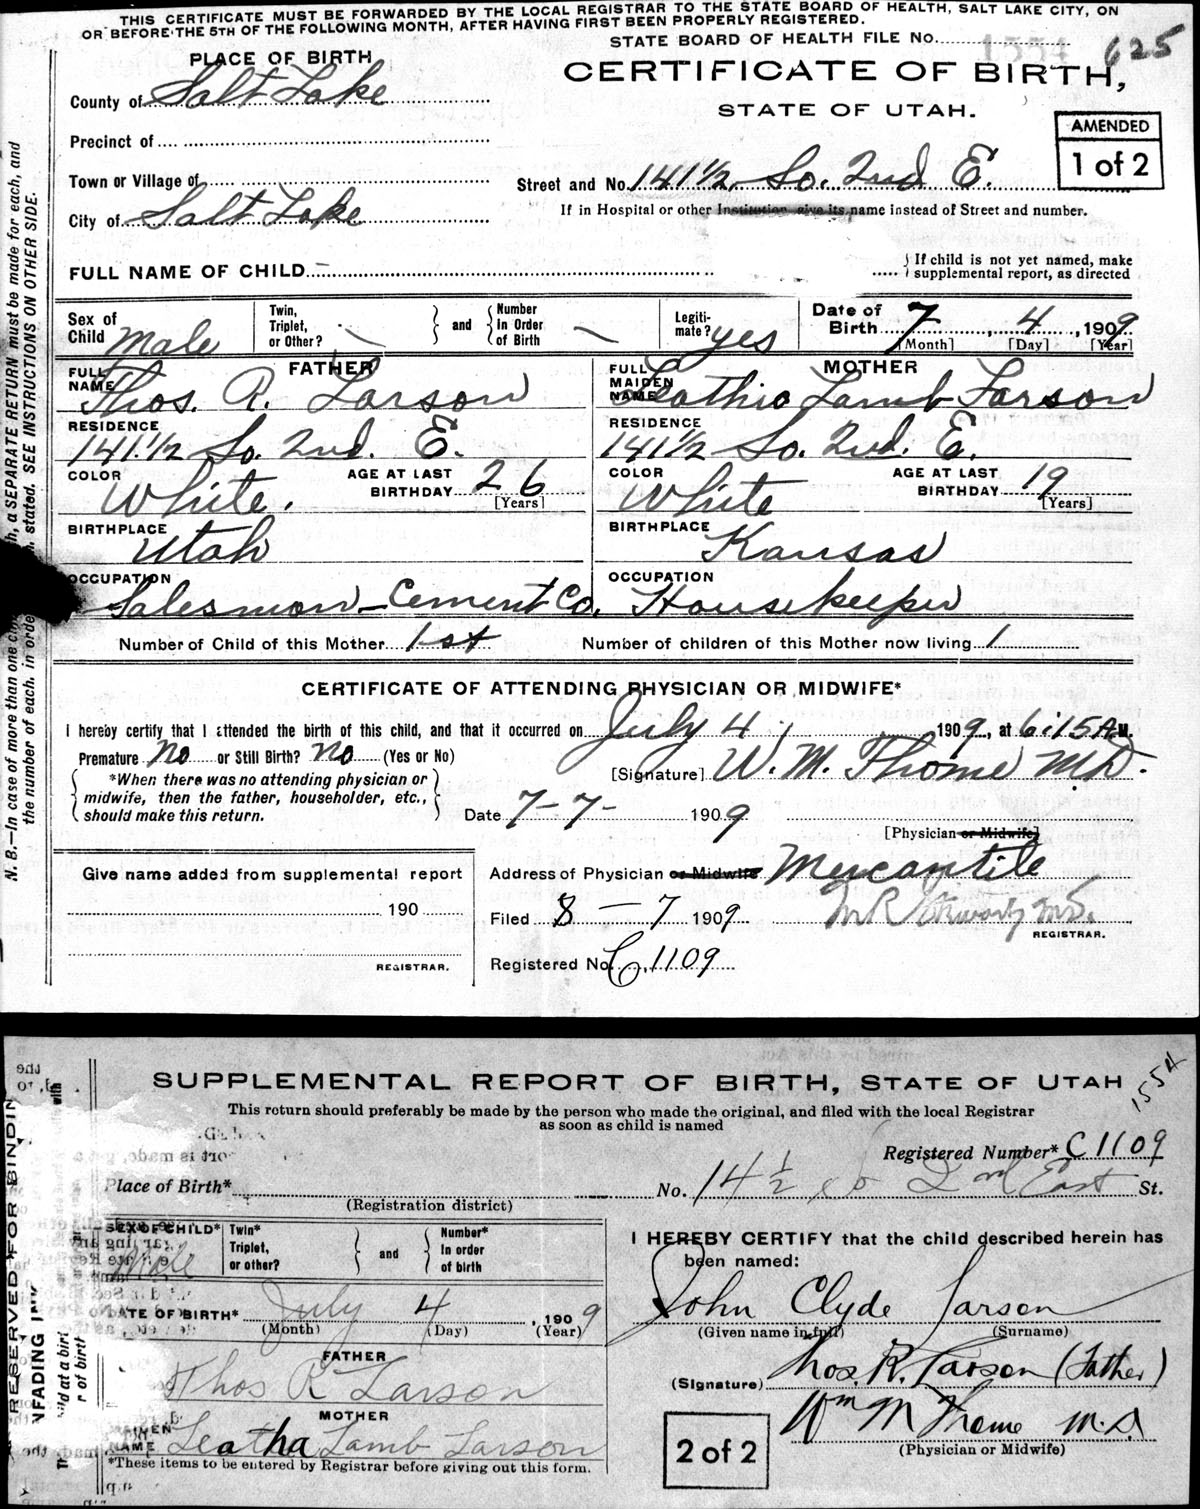 THIS CERTIFICATE MUST BE FORWARDED BY THE LOCAL REGISTRAR TO THE STATE BOARD OF HEALTH, SALT LAKE CITY, ON
OR BEFORE THE 5TH OF THE FOLLOWING MONTH, AFTER HAVING FIRST BEEN PROPERLY REGISTERED.
STATE BOARD OF HEALTH FILE No. 1554 625
PLACE OF BIRTH
CERTIFICATE OF BIRTH,
STATE OF UTAH.
County of Salt Lake
AMENDED
1 of 2
Precinct of
Town or Village of
Street and No. 141½ So. 2nd E.
City of Salt Lake
If in Hospital or other Institution, give its name instead of Street and number.
FULL NAME OF CHILD –
If child is not yet named, make
supplemental report, as directed
Sex of Child Male
Twin, Triplet, or Other?
and
Number In Order of Birth
Legiti-mate? yes
Date of Birth 7, 4, 1909
[Month] [Day] [Year]
FATHER
FULL NAME Thos. R. Larson
MOTHER
FULL MAIDEN NAME Leathio Lamb Larson
RESIDENCE 141½ So. 2nd. E.
RESIDENCE 141½ So. 2nd. E.
COLOR White.
AGE AT LAST BIRTHDAY 26 [Years]
COLOR White
AGE AT LAST BIRTHDAY 19 [Years]
BIRTHPLACE Utah
BIRTHPLACE Kansas
OCCUPATION Salesman – Cement Co.
OCCUPATION Housekeeper
Number of Child of this Mother 1st
Number of children of this Mother now living 1
CERTIFICATE OF ATTENDING PHYSICIAN OR MIDWIFE*
I hereby certify that I attended the birth of this child, and that it occurred on July 4, 1909, at 6:15 A.M.
Premature No or Still Birth? No (Yes or No)
[Signature] W. M. Thome MD.
*When there was no attending physician or
midwife, then the father, householder, etc.,
should make this return.
Date 7-7- 1909
[Physician or Midwife]
Give name added from supplemental report
190
REGISTRAR.
Address of Physician or Midwife Mercantile
Filed 8 – 7 1909
REGISTRAR.
Registered No. C.1109
N. B.—In case of more than one
a SEPARATE RETURN must be made for each, and
the number of each, in orde
stated. SEE INSTRUCTIONS ON OTHER SIDE.
SUPPLEMENTAL REPORT OF BIRTH, STATE OF UTAH
1554
This return should preferably be made by the person who made the original, and filed with the local Registrar
as soon as child is named
Registered Number* C1109
Place of Birth*
(Registration district)
No. 14½ So 2nd East St.
SEX OF CHILD* Male
Twin* Triplet, or other?
and
Number* In order of birth
I HEREBY CERTIFY that the child described herein has
been named:
DATE OF BIRTH* July 4, 1909
(Month) (Day) (Year)
John Clyde Larson
(Given name in full) (Surname)
FATHER
Thos R Larson
(Signature) Thos. R. Larson (Father)
MOTHER
MAIDEN NAME Leatha Lamb Larson
Wm M Thome M.D.
(Physician or Midwife)
*These items to be entered by Registrar before giving out this form.
2 of 2
RESERVED FOR BINDIN
NFADING INK